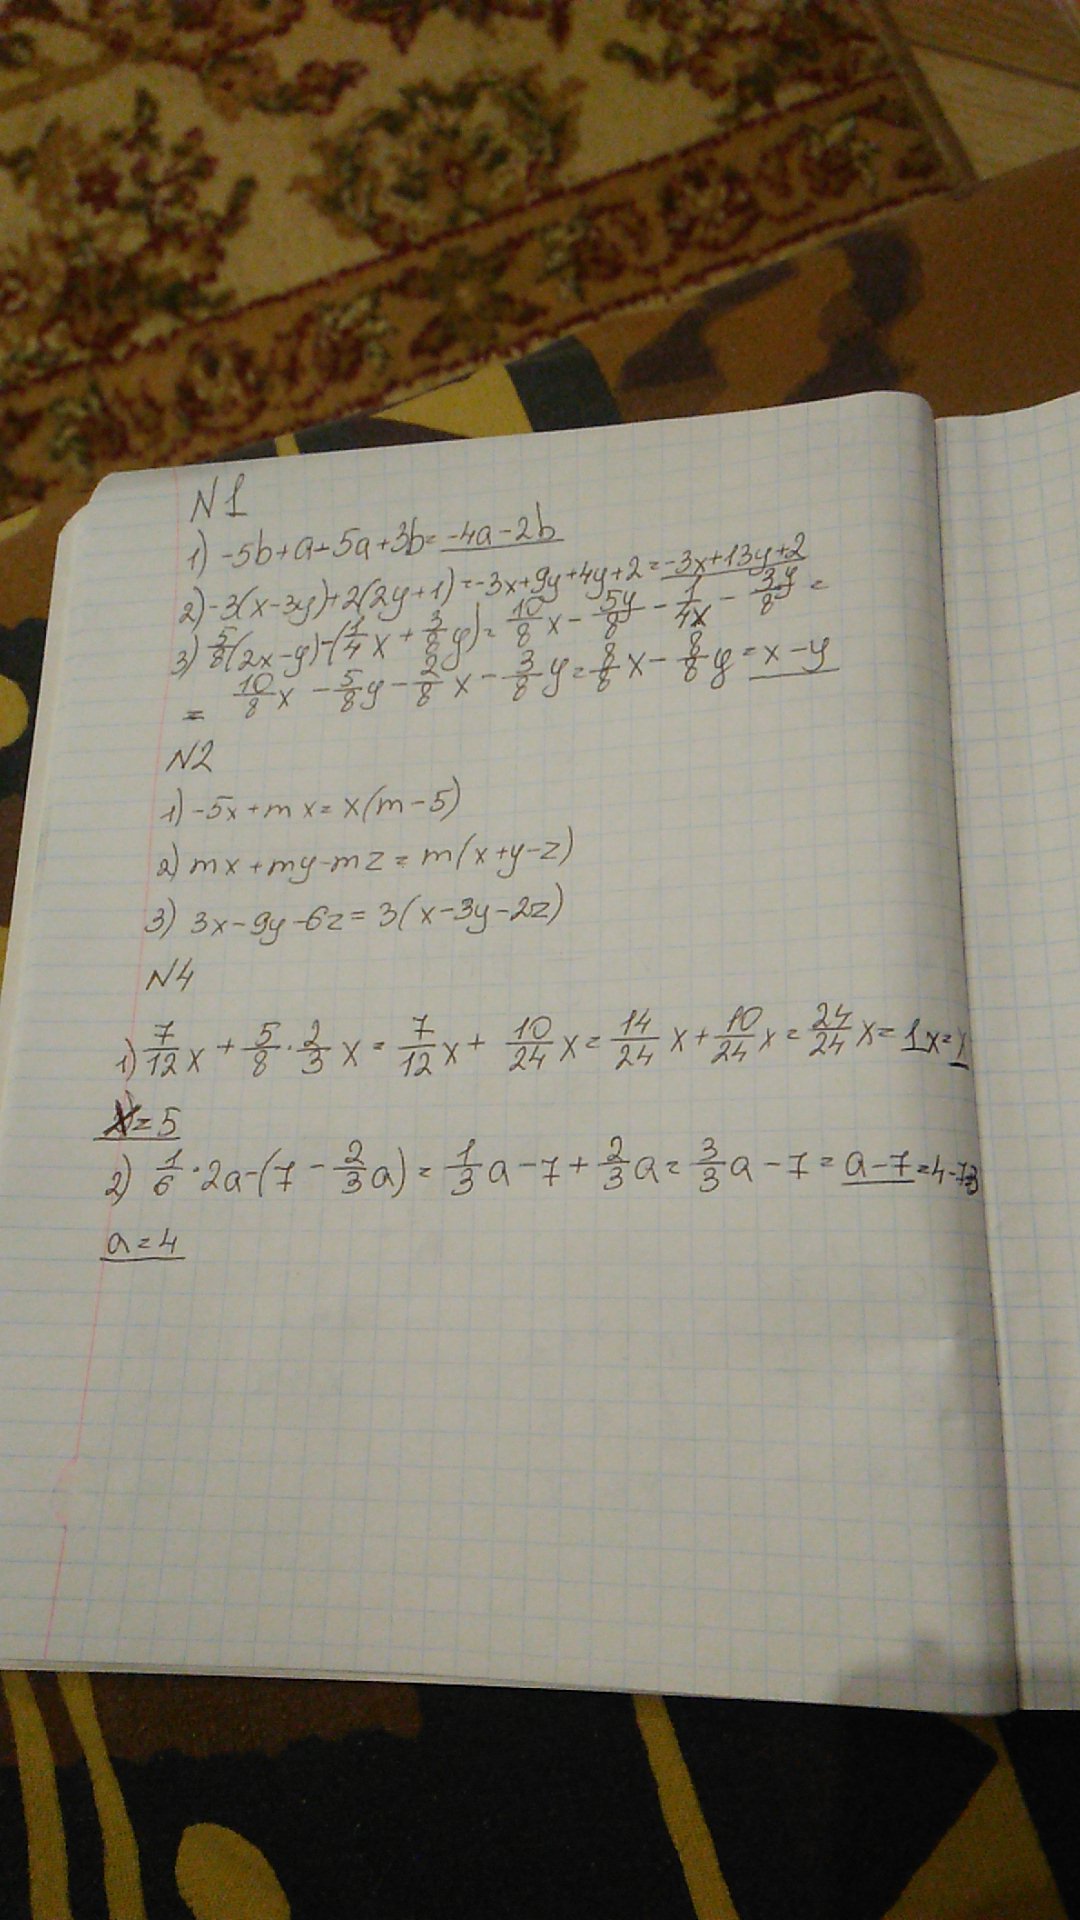 N1
1) -5b+a-5a+3b=-4a-2b
2) -3(x-3y)+2(2y+1)=-3x+9y+4y+2=-3x+13y+2
3) 5/8(2x-y)-(1/4x+3/8y)=10/8x-5y/8-1/4x-3y/8=
= 10/8x-5/8y-2/8x-3/8y=8/8x-8/8y=x-y
N2
1) -5x+mx=x(m-5)
2) mx+my-mz=m(x+y-z)
3) 3x-9y-6z=3(x-3y-2z)
N4
1) 7/12x+5/8·2/3x=7/12x+10/24x=14/24x+10/24x=24/24x=1x=x
x=5
2) 1/6·2a-(7-2/3a)=1/3a-7+2/3a=3/3a-7=a-7=4-7=3
a=4